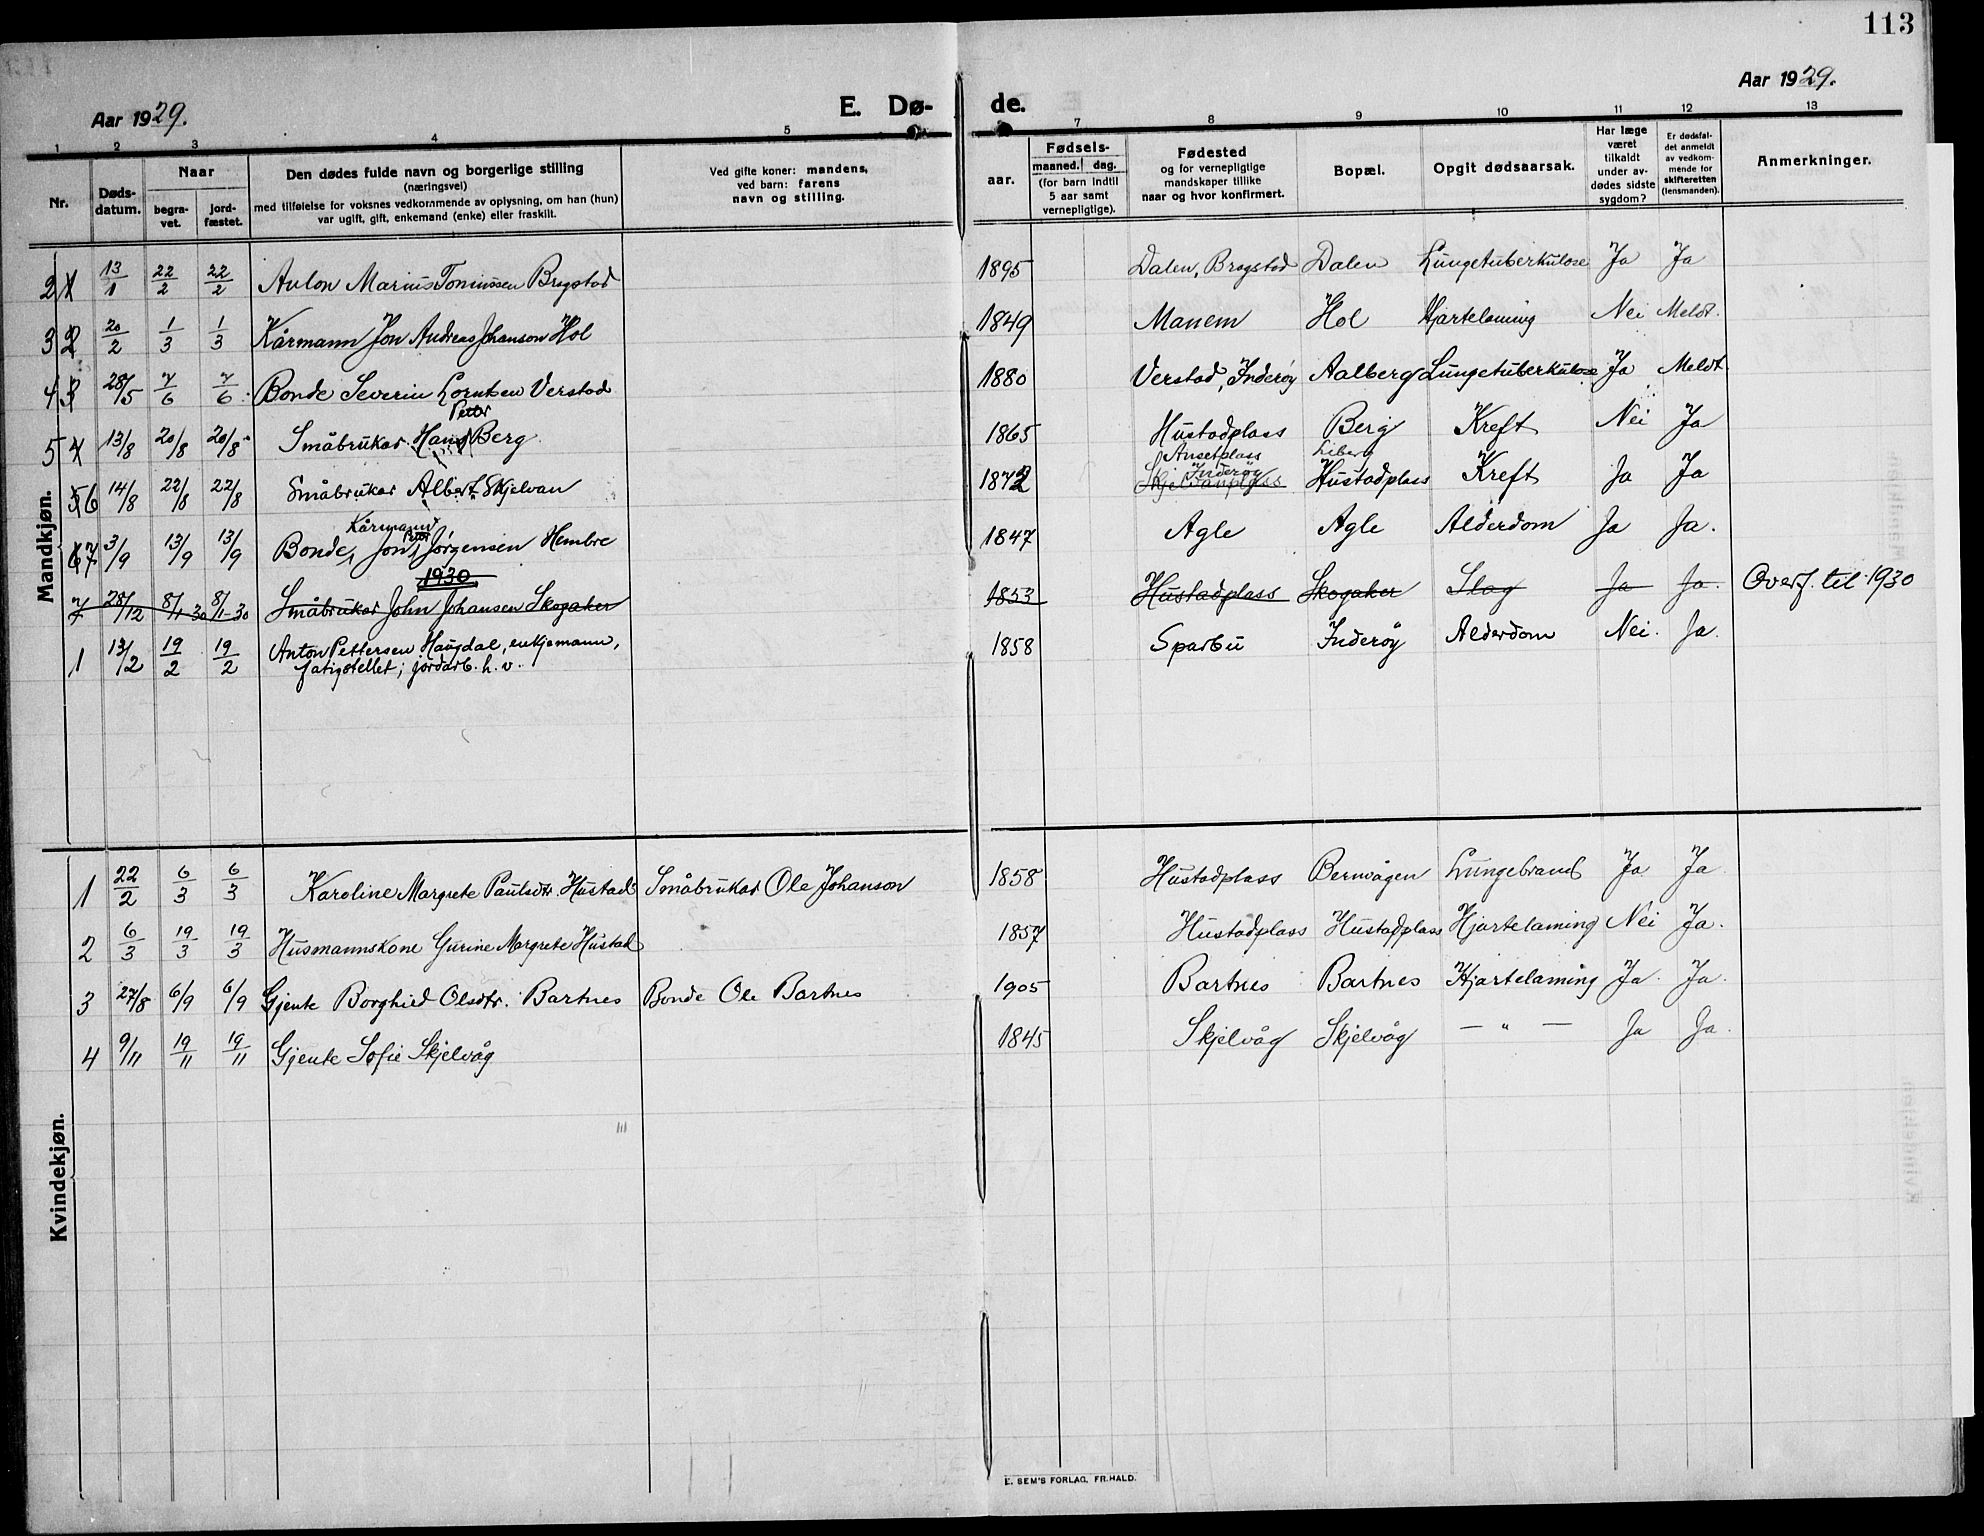 113
Aar 1929. E. Dø- de. Aar 1929.
1 2 3 4 5 7 8 9 10 11 12 13
Nr.
Døds-
datum.
Naar
begra-
vet.
jord-
fæstet.
Den dødes fulde navn og borgerlige stilling
(næringsvei)
med tilføielse for voksnes vedkommende av oplysning, om han (hun)
var ugift, gift, enkemand (enke) eller fraskilt.
Ved gifte koner: mandens,
ved barn: farens
navn og stilling.
aar.
Fødsels-
maaned. dag.
(for barn indtil
5 aar samt
vernepligtige).
Fødested
og for vernepligtige
mandskaper tillike
naar og hvor konfirmert.
Bopæl.
Opgit dødsaarsak.
Har læge
været
tilkaldt
under av-
dødes sidste
sygdom?
Er dødsfal-
det anmeldt
av vedkom-
mende for
skifteretten
(lensmanden).
Anmerkninger.
Mandkjøn.
2 1 13/1 22/2 22/2 Anton Marius Toniussen Brogstad 1895 Dalen, Brogstad Dalen Lungetuberkulose Ja Ja
3 2 20/2 1/3 1/3 Kårmann Jon Andreas Johanson Hol 1849 Manem Hol Hjartelaming Nei Meldt.
4 3 28/5 7/6 7/6 Bonde Severin Lorntsen Verstad 1880 Verstad, Inderøy Aalberg Lungetuberkulose Ja Meldt
Petter
5 4 13/8 20/8 20/8 Småbrukar Hans Berg 1865 Hustadplass Berg Kreft Nei Ja
Ansetplass
Inderøy
5 6 14/8 22/8 22/8 Småbrukar Albert Skjelvan 1872 Skjelvanplass Hustadplass Kreft Ja Ja
Kårmann
Petter
6 7 3/9 13/9 13/9 Bonde, Jon Jørgensen Hembre 1847 Agle Agle Alderdom Ja Ja.
1930
7 28/12 8/1-30 8/1-30 Småbrukar John Johansen Skogaker 1853 Hustadplass Skogaker Slag Ja Ja. Overf. til 1930
1 13/2 19/2 19/2 Anton Pettersen Haugdal, enkjemann, 1858 Sparbu Inderøy Alderdom Nei. Ja.
fatigstellet; jordarb. h. v.
Kvindekjøn.
1 22/2 6/3 6/3 Karoline Margrete Paulsdtr. Hustad Småbrukar Ole Johanson 1858 Hustadplass Bernvågen Lungebrand Ja Ja
2 6/3 19/3 19/3 Husmannskone Gurine Margrete Hustad 1857 Hustadplass Hustadplass Hjartelaming Nei Ja.
3 27/8 6/9 6/9 Gjente Borghild Olsdtr. Bartnes Bonde Ole Bartnes 1905 Bartnes Bartnes Hjartelaming Ja. Ja.
4 9/11 19/11 19/11 Gjente Sofie Skjelvåg 1845 Skjelvåg Skjelvåg — " — Ja Ja.
E. SEM'S FORLAG, FR.HALD.